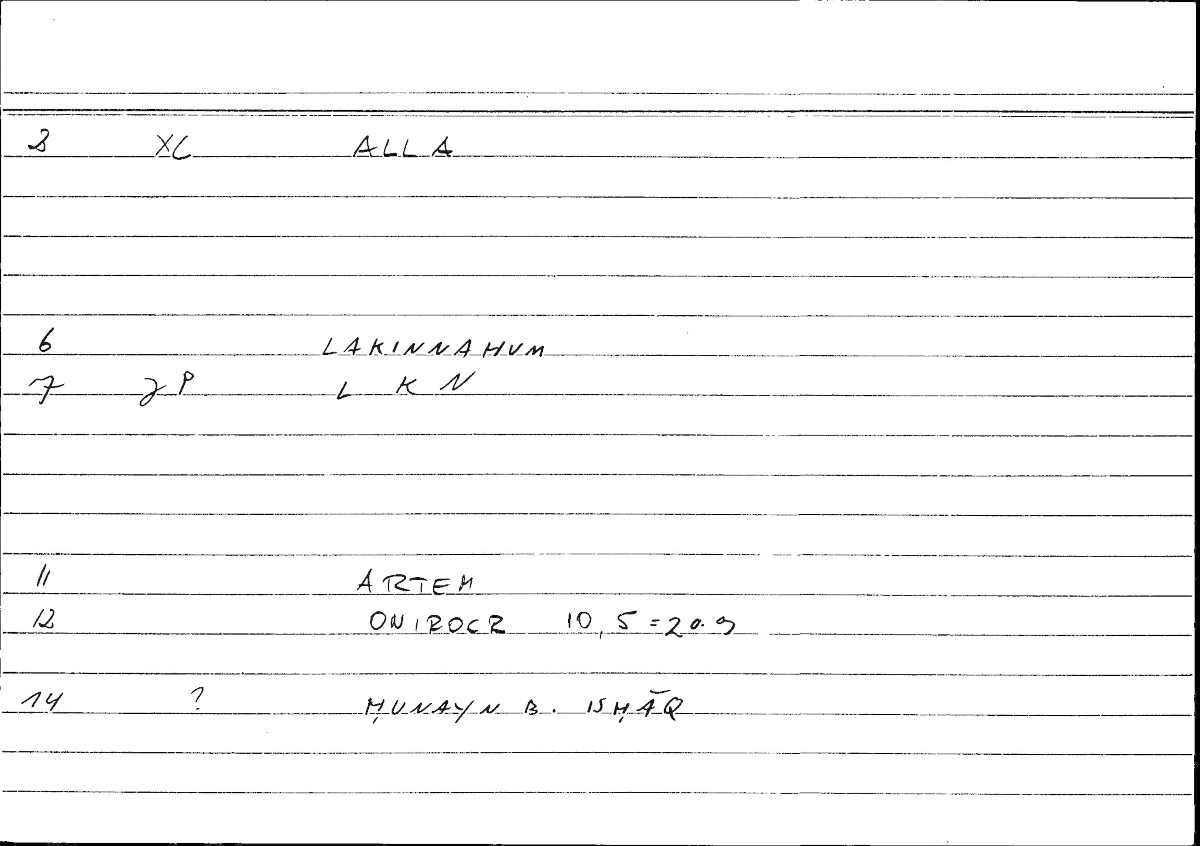 3 XC ALLA
6 LAKINNAHUM
7 JP L K N
11 ARTEM
12 ONIROCR 10, 5 = 20.9
14 ? ḤUNAYN B. ISḤĀQ